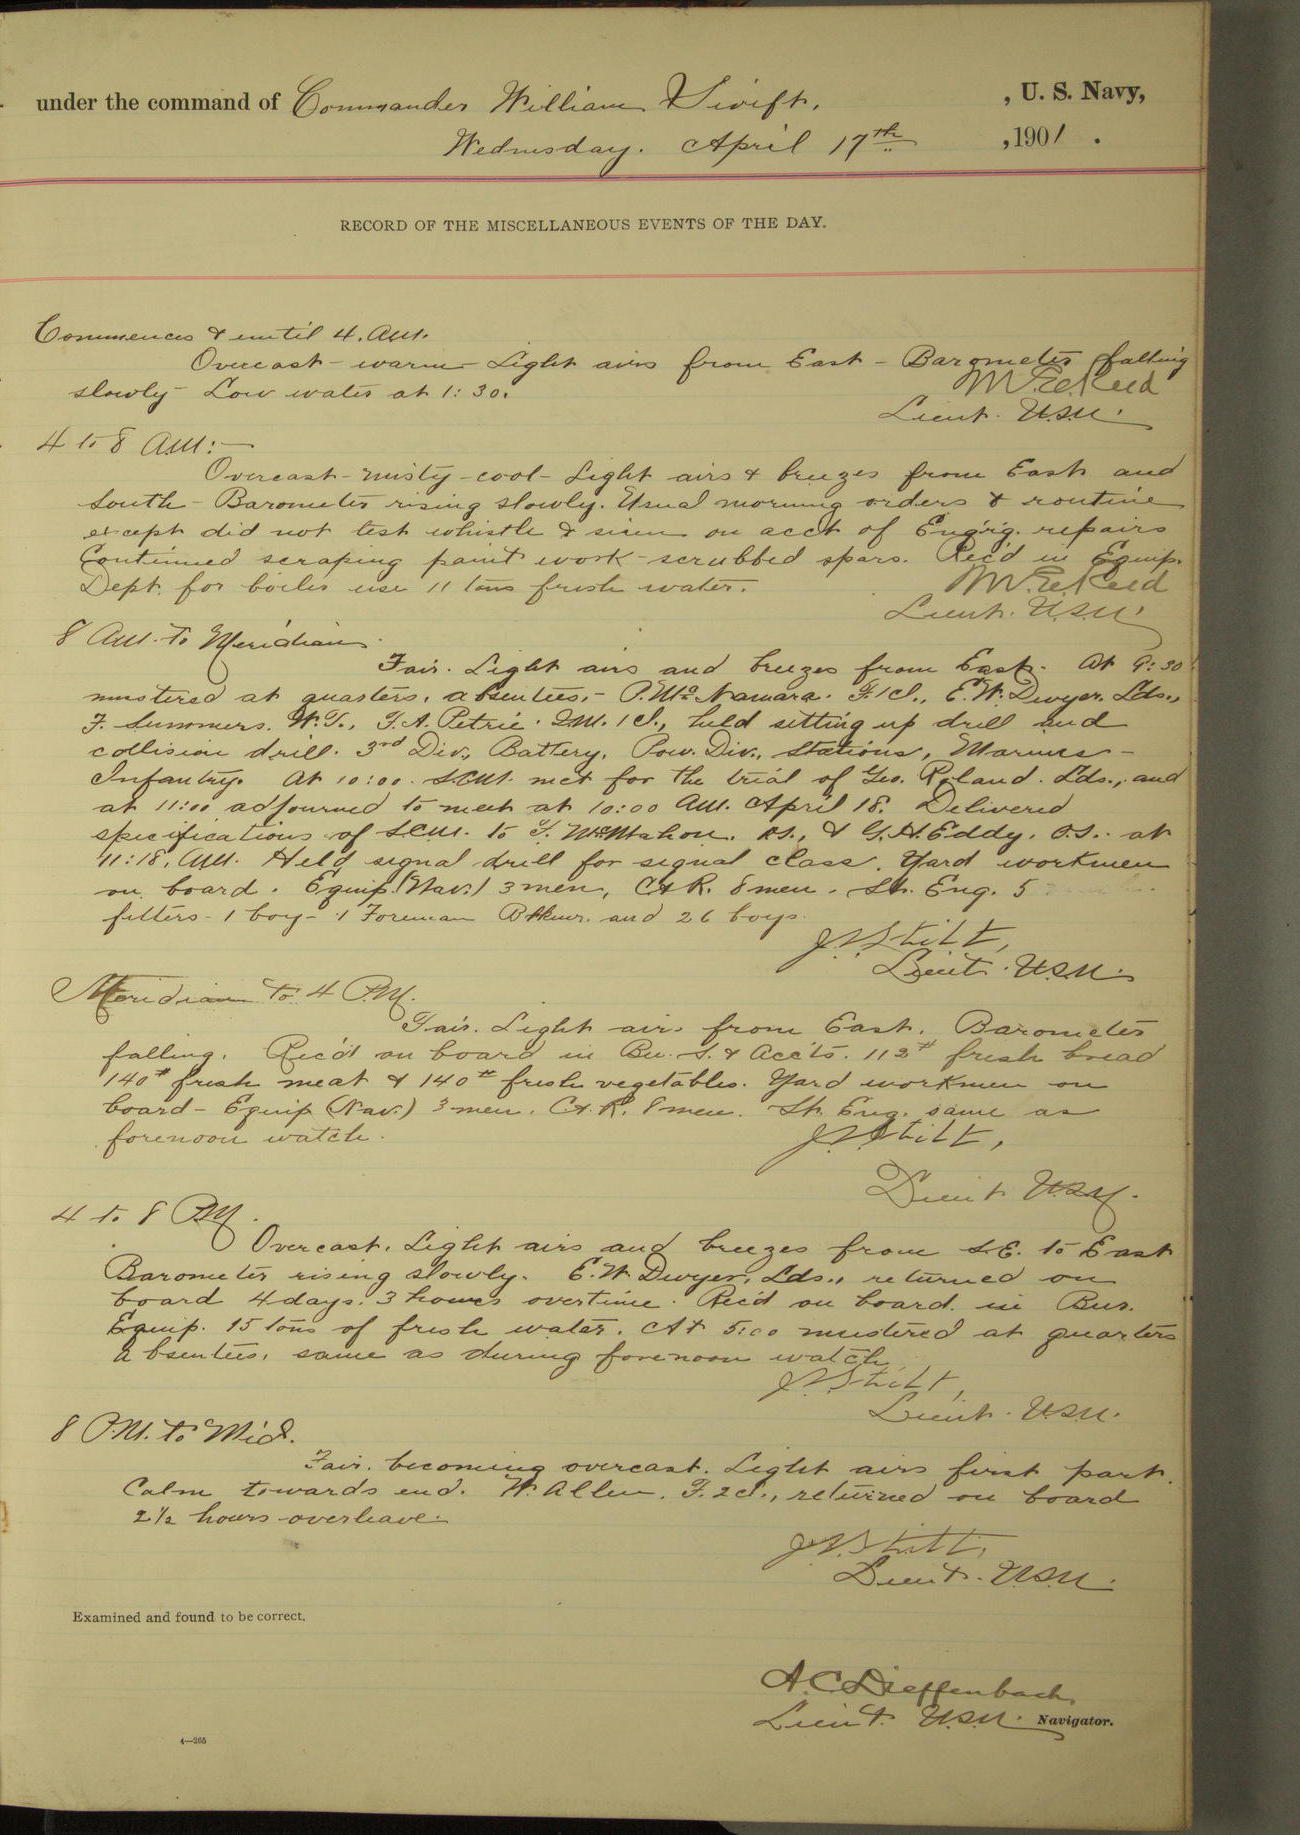 under the command of Commander William Swift, , U. S. Navy,
Wednesday. April 17th , 1901 .
RECORD OF THE MISCELLANEOUS EVENTS OF THE DAY.
Commences & until 4. A.M.
Overcast - warm - Light airs from East - Barometer falling
slowly - Low water at 1:30.
Reed
Lieut. U.S.N.
4 to 8 A.M:-
Overcast - misty - cool - Light airs & breezes from East and
South - Barometer rising slowly. Usual morning orders & routine
except did not test whistle & siren on acct of Eng'r'g. repairs
Continued scraping paint work - scrubbed spars. Rec'd in Equip.
Dept. for boiler use 11 tons fresh water.
Reed
Lieut. U.S.N.
8 A.M. to Meridian.
Fair. Light airs and breezes from East. At 9:30
mustered at quarters, absentees, - P. McNamara. F.1Cl., E.W. Dwyer. Lds.,
F. Summers. W.T., T.A. Petrie. G.M. 1 Cl., held setting up drill and
collision drill. 3rd Div., Battery, Pow. Div., Stations, Marines -
Infantry. At 10:00 S.C.M. met for the trial of Geo. Roland. Lds., and
at 11:00 adjourned to meet at 10:00 A.M. April 18. Delivered
specifications of S.C.M. to T. McMahon. & G.H. Eddy, O.S. at
11:18. A.M. Held signal drill for signal class. Yard workmen
on board. Equip. (Nav.) 3 men, C & R. 8 men. St. Eng. 5
fitters - 1 boy - 1 Foreman and 26 boys.
J.V. Stitt,
Lieut. U.S.N.
Meridian to 4 P.M.
Fair. Light airs from East. Barometer
falling. Rec'd on board in Bu. S. & Acc'ts. 112# fresh bread
140# fresh meat & 140# fresh vegetables. Yard workmen on
board - Equip (Nav.) 3 men. C.&R. 8 men. St. Eng. same as
forenoon watch.
J.V. Stitt,
Lieut U.S.N.
4 to 8 P.M.
Overcast. Light airs and breezes from S.E. to East
Barometer rising slowly. E.W. Dwyer, Lds., returned on
board 4 days. 3 hours overtime. Rec'd on board. in Bur.
Equip. 15 tons of fresh water. At 5:00 mustered at quarters
absentees, same as during forenoon watch.
J.V. Stitt,
Lieut. U.S.N.
8 P.M. to Mid.
Fair. becoming overcast. Light airs first part.
Calm towards end. W. Allen. F.2Cl., returned on board
2 1/2 hours overleave.
J.V. Stitt,
Lieut. U.S.N.
Examined and found to be correct.
A.C. Dieffenbach
Lieut. U.S.N. Navigator.
4—265